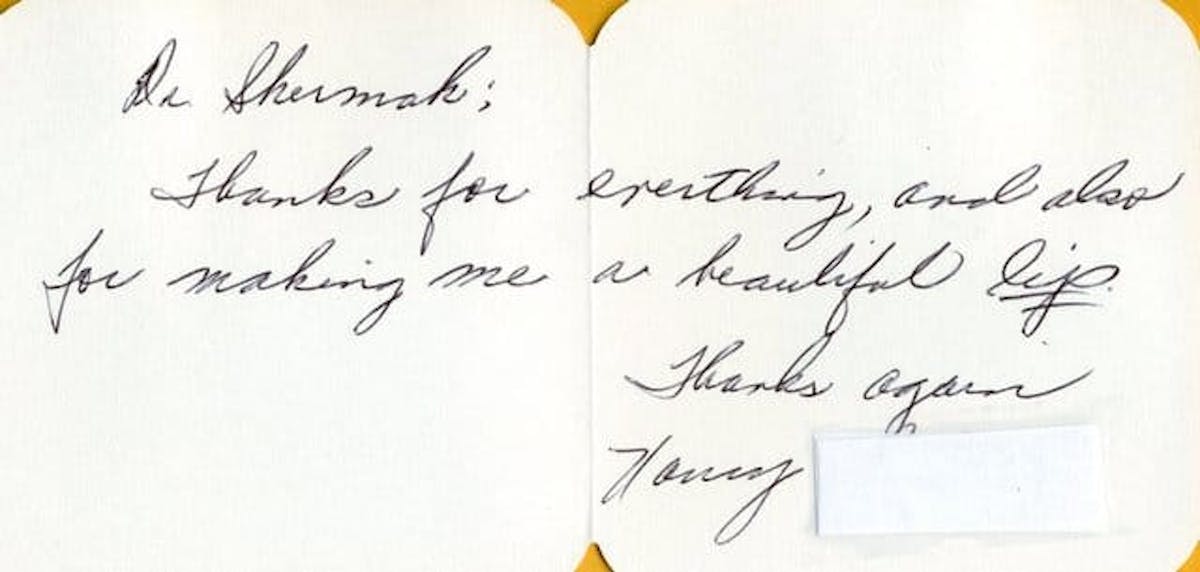 Dr. Shermak;
Thanks for everthing, and also
for making me a beautiful lip.
Thanks again
Nancy